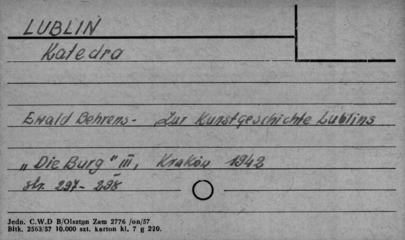 LUBLIN
Katedra
Ewald Behrens - Zur Kunstgeschichte Lublins
„Die Burg" III, Kraków 1942
str. 297-298
Jedn. C.W.D B/Olsztyn Zam 2776 /on/57
Bltk. 2563/57 10.000 szt. karton kl. 7 g 220.